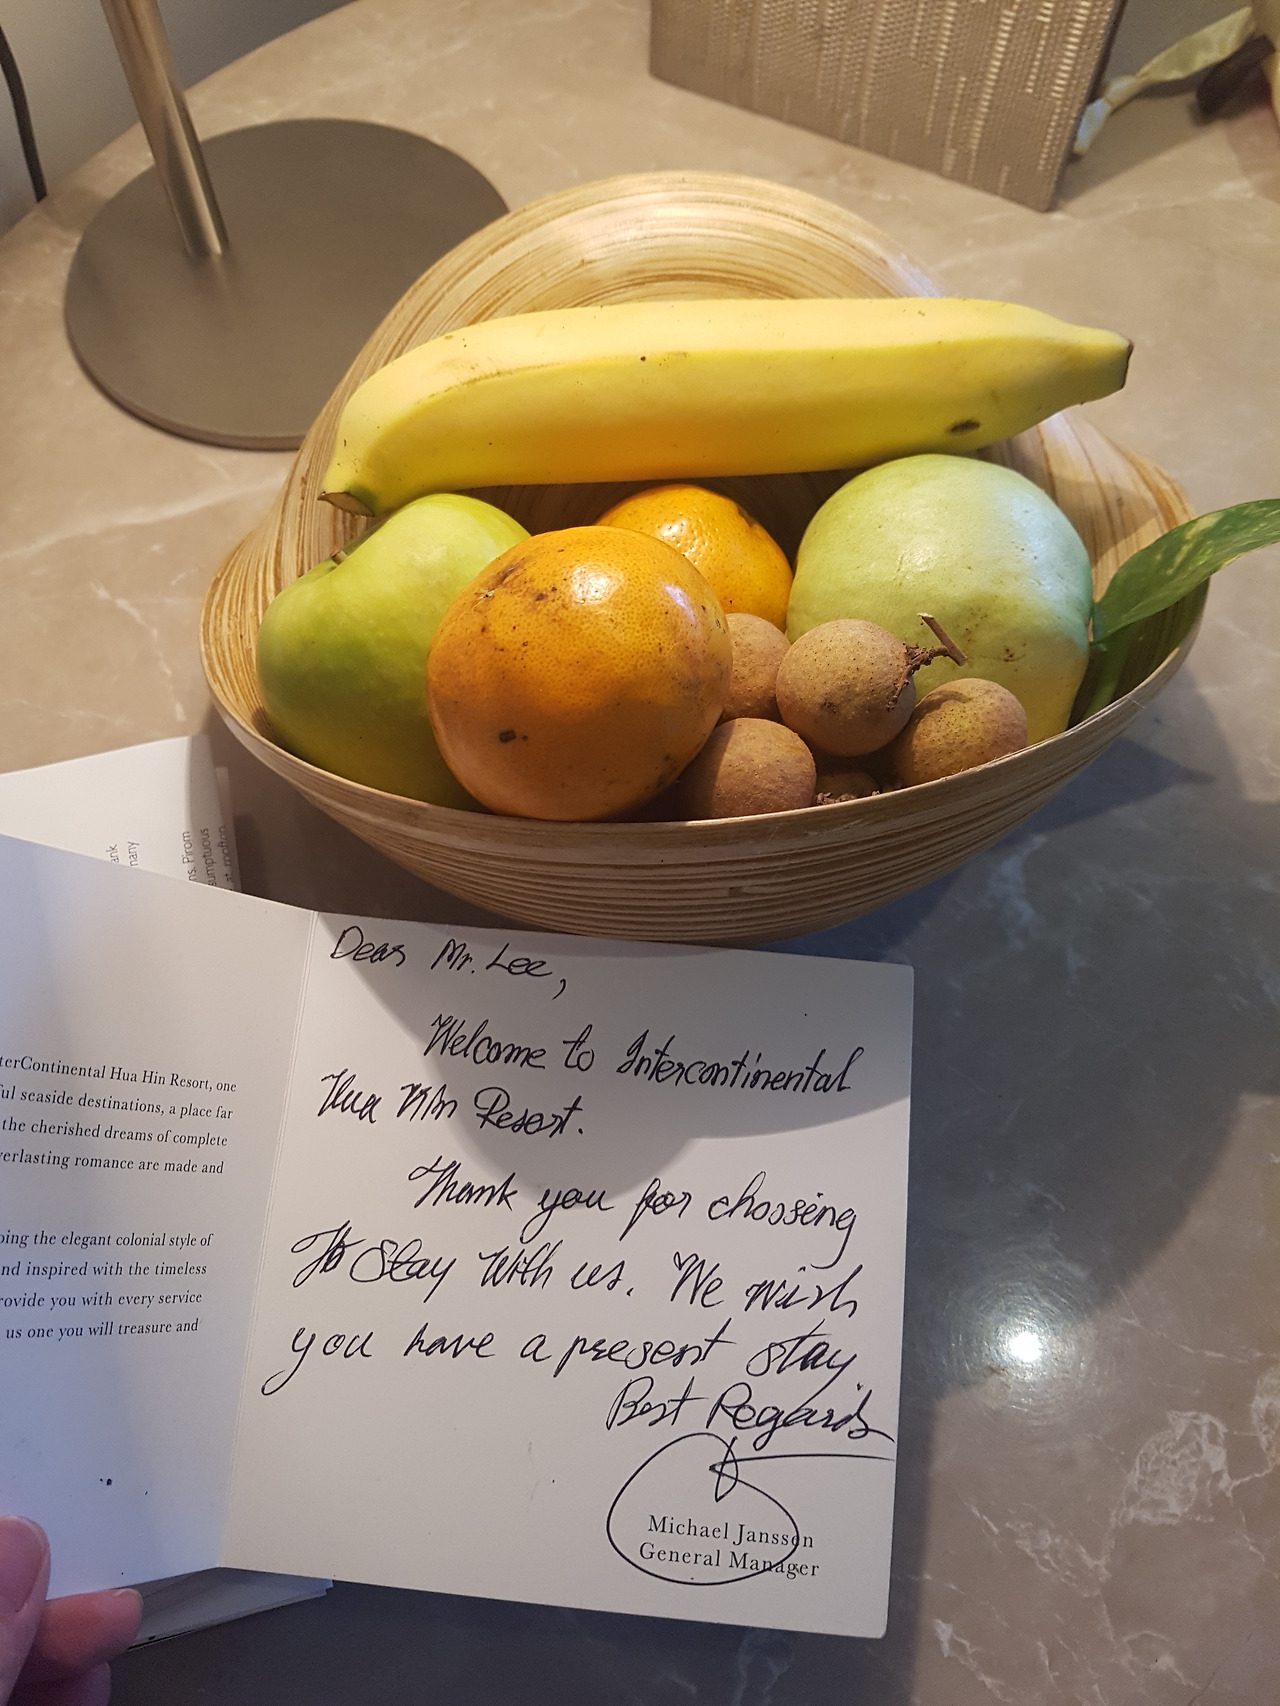 ank
nany
ns. Pirom
sumptuous
at rooftop
terContinental Hua Hin Resort, one
ful seaside destinations, a place far
the cherished dreams of complete
verlasting romance are made and
ping the elegant colonial style of
nd inspired with the timeless
rovide you with every service
us one you will treasure and
Dear Mr. Lee,
Welcome to Intercontinental
Hua Hin Resort.
Thank you for choosing
to Stay With us. We wish
you have a present stay.
Best Regards
Michael Janssen
General Manager